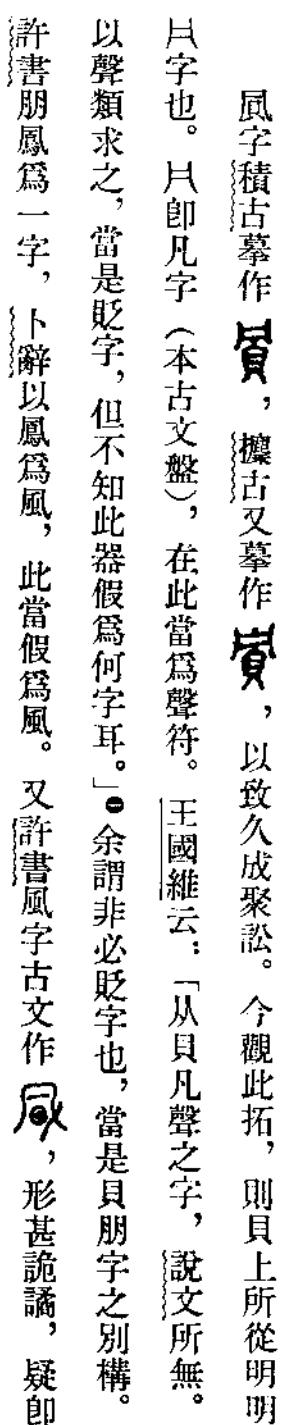 字積古摹作,攈古又摹作,以致久成聚訟。今觀此拓,則貝上所從明明
字也。卽凡字(本古文盤),在此當爲聲符。王國維云:「从貝凡聲之字,說文所無。
以聲類求之,當是貶字,但不知此器假爲何字耳。」㊀余謂非必貶字也,當是貝朋字之別構。
許書朋鳳爲一字,卜辭以鳳爲風,此當假爲風。又許書風字古文作,形甚詭譎,疑卽